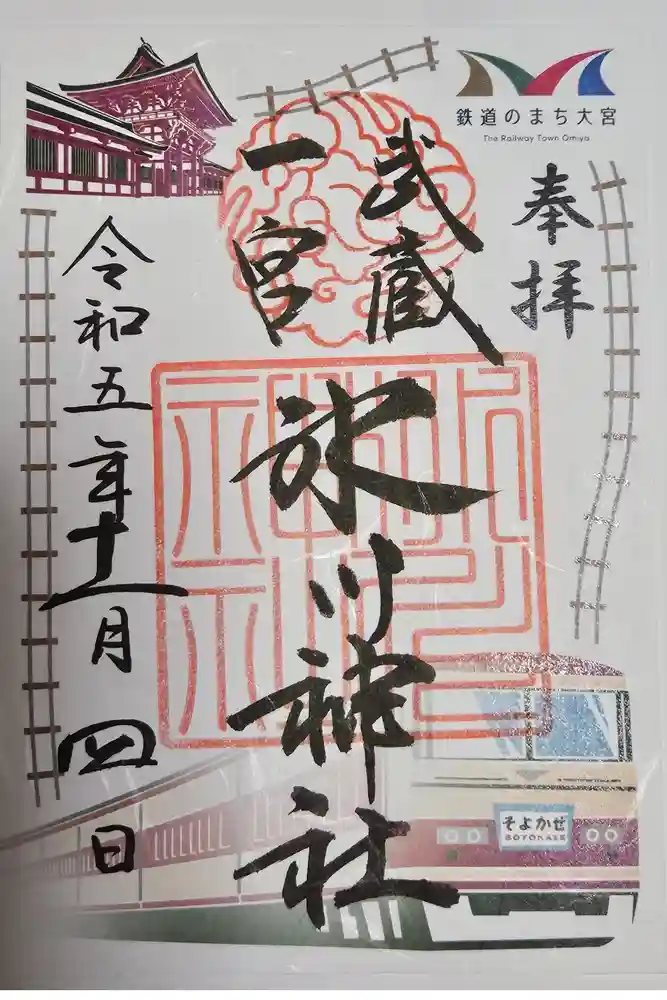 鉄道のまち大宮
The Railway Town Omiya
奉拝
武蔵
一宮
氷川神社
令和五年十一月四日
そよかぜ
SOYOKAZE